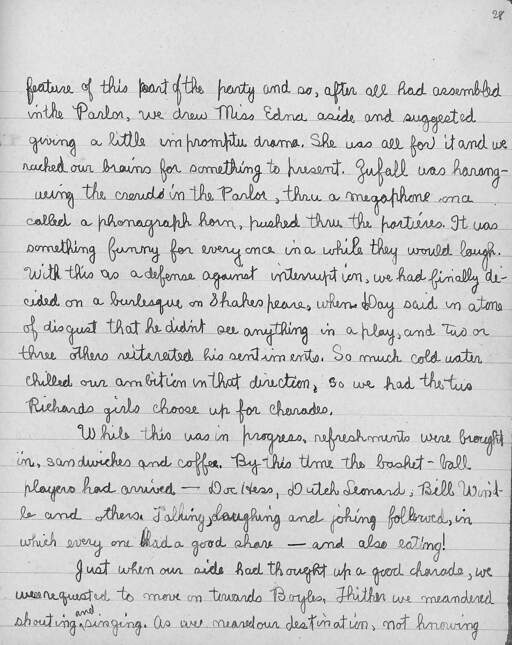 28
feature of this part of the party and so, after all had assembled
in the Parlor, we drew Miss Edna aside and suggested
giving a little impromptu drama. She was all for it and we
racked our brains for something to present. Zufall was harang-
ueing the crowd in the Parlor, thru a megaphone once
called a phonagraph horn, pushed thru the portiéres. It was
something funny for every once in a while they would laugh.
With this as a defense against interruption, we had finally de-
cided on a burlesque on Shakespeare, when Day said in a tone
of disgust that he didn't see anything in a play, and two or
three others reitereated his sentiments. So much cold water
chilled our ambition in that direction, so we had the two
Richards girls choose up for charades.
While this was in progress, refreshments were brought
in, sandwiches and coffee. By this time the basket-ball
players had arrived — Doc Hess, Dutch Leonard, Bill Wind-
le and others. Talking, laughing and joking followed, in
which every one had a good share — and also eating!
Just when our side had thought up a good charade, we
were requested to move on towards Boyles. Thither we meandered
shouting and singing. As we neared our destination, not knowing